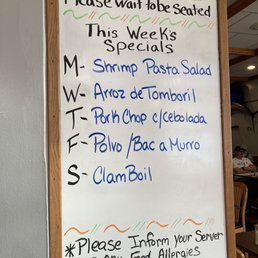 Please wait to be Seated
This Week's
Specials
M- Shrimp Pasta Salad
W- Arroz de Tomboril
T- Pork Chop c/cebolada
F- Polvo/Bac a Murro
S- Clam Boil
*Please Inform Your Server
Any Food Allergies